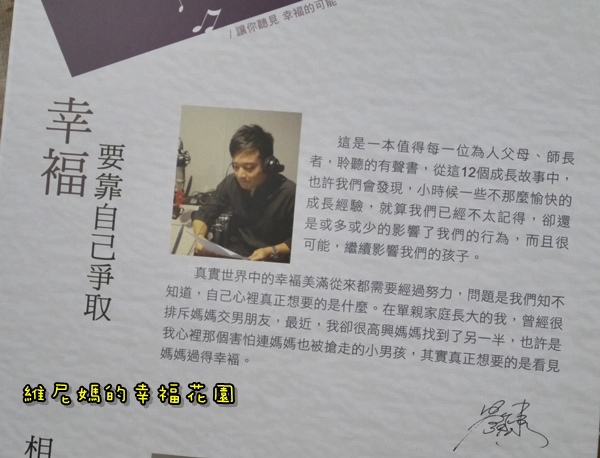 / 讓你聽見 幸福的可能
幸福
要靠自己爭取
這是一本值得每一位為人父母、師長
者，聆聽的有聲書，從這12個成長故事中，
也許我們會發現，小時候一些不那麼愉快的
成長經驗，就算我們已經不太記得，卻還
是或多或少的影響了我們的行為，而且很
可能，繼續影響我們的孩子。
真實世界中的幸福美滿從來都需要經過努力，問題是我們知不
知道，自己心裡真正想要的是什麼。在單親家庭長大的我，曾經很
排斥媽媽交男朋友，最近，我卻很高興媽媽找到了另一半，也許是
我心裡那個害怕連媽媽也被搶走的小男孩，其實真正想要的是看見
媽媽過得幸福。
維尼媽的幸福花園
相